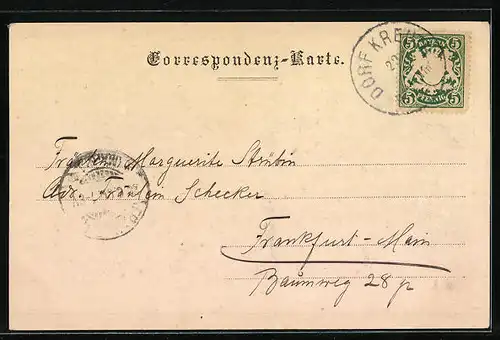 Correspondenz-Karte.
DORF KREU
BAYERN
5 5
PFENNIG
5 5
Fräulein Marguerite Strübin
Adr. Fräulein Schecker
Frankfurt-Main
Baumweg 28 p